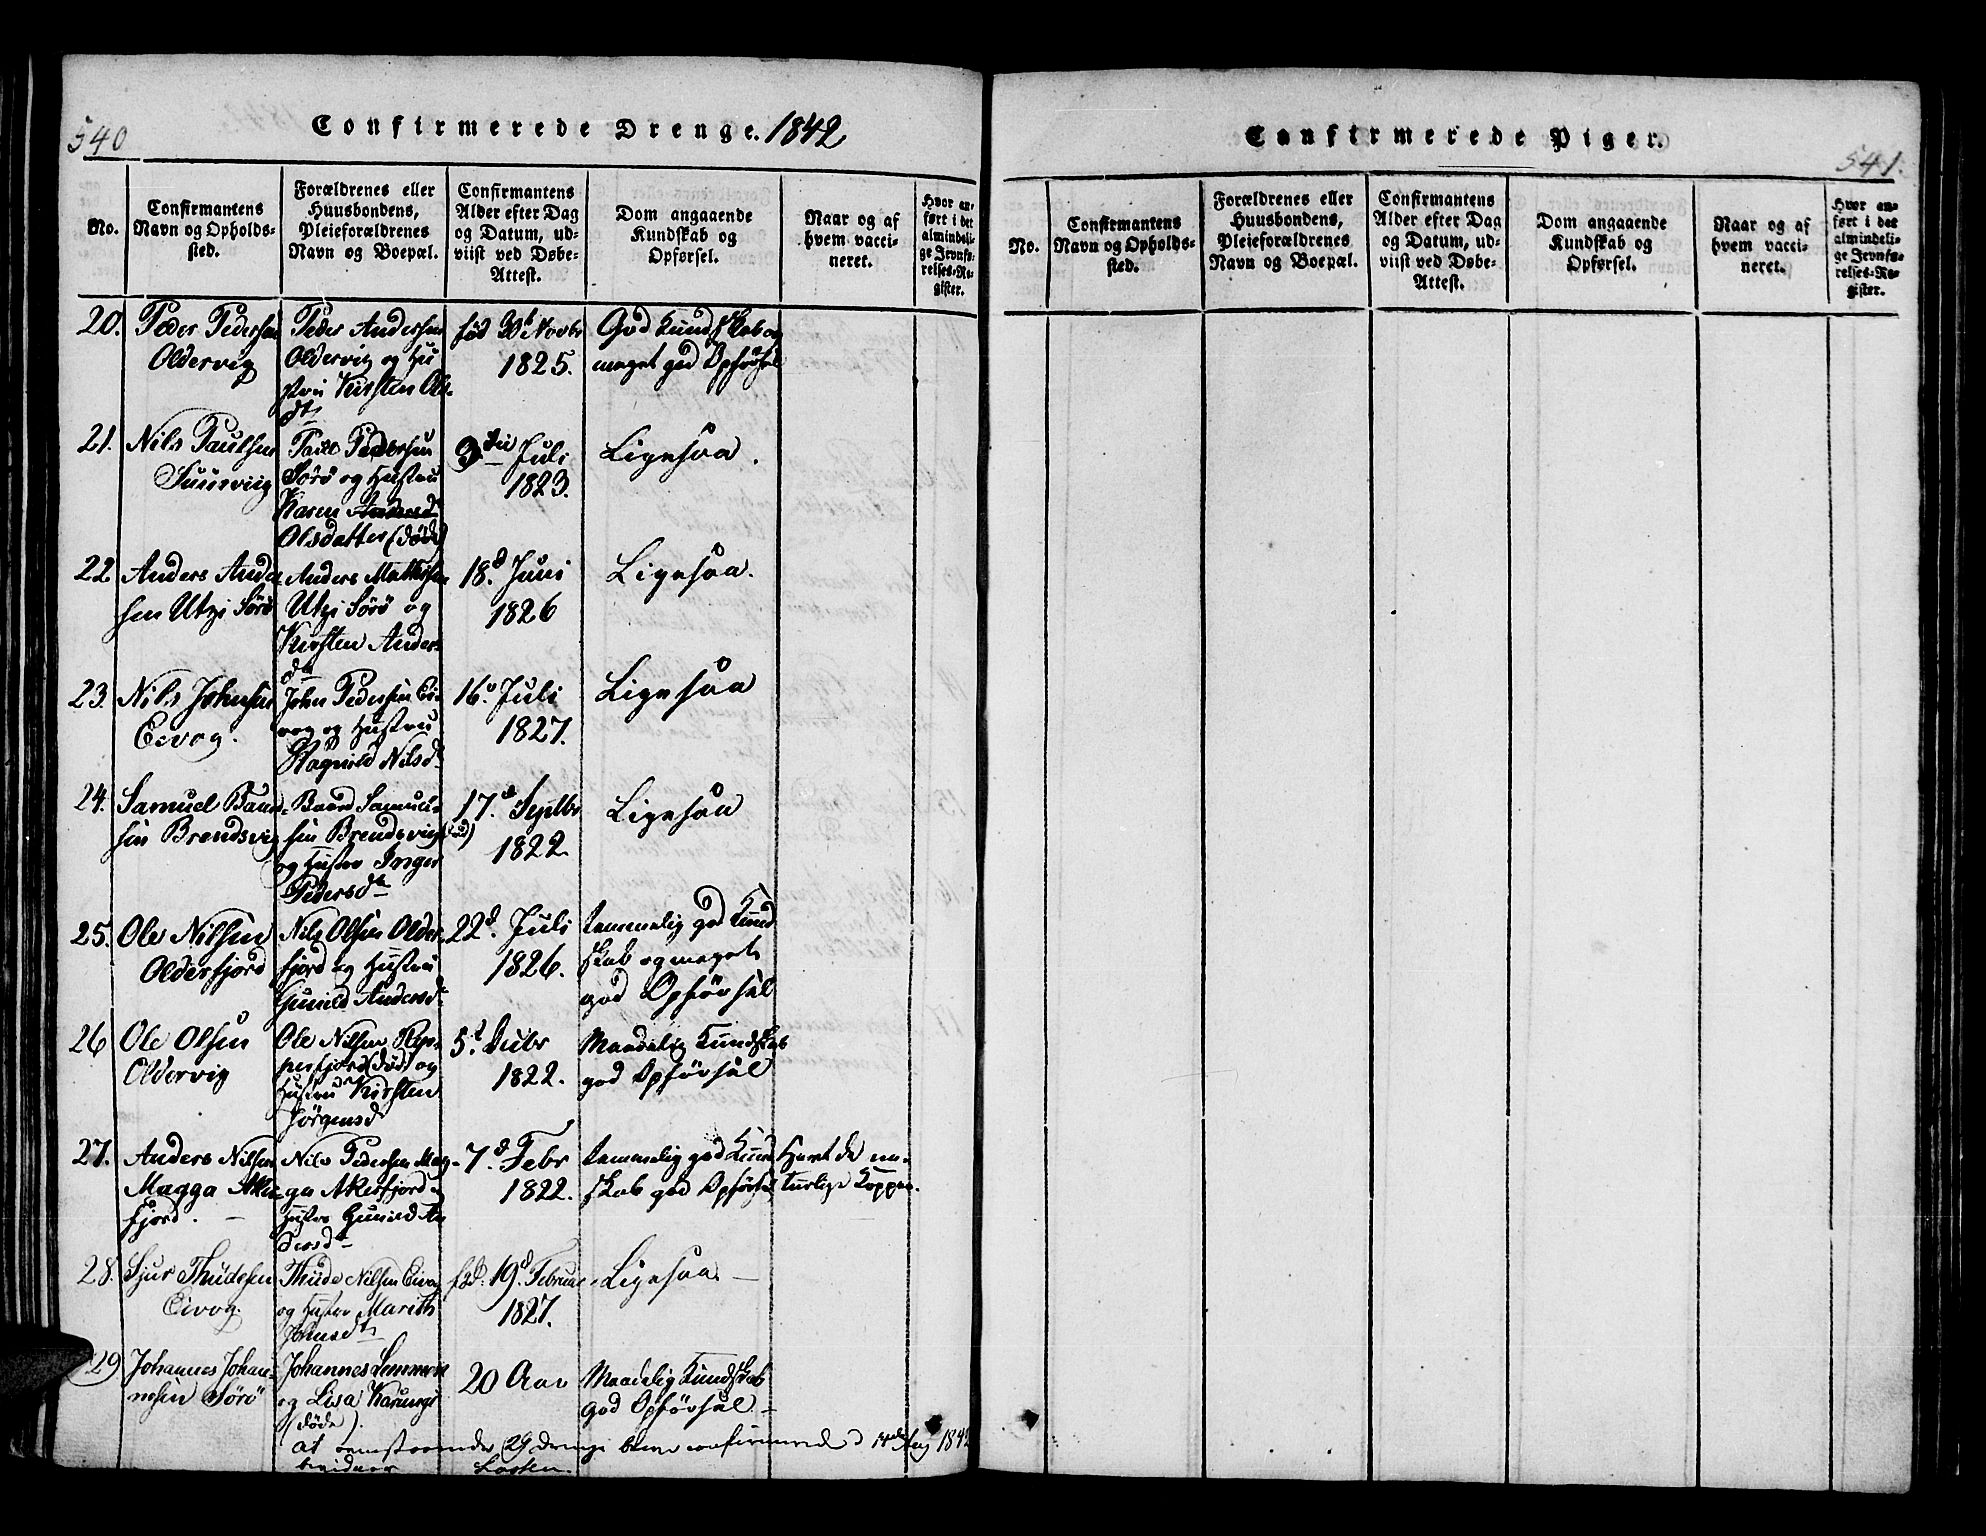 540
Confirmerede Drenge. 1842
No.
Confirmantens
Navn og Opholds-
sted.
Forældrenes eller
Huusbondens,
Pleieforældrenes
Navn og Boepæl.
Confirmantens
Alder efter Dag
og Datum, ud-
viist ved Døbe-
Attest.
Dom angaaende
Kundskab og
Opførsel.
Naar og af
hvem vacci-
neret.
Hvor an-
ført i det
almindeli-
ge Jevnfø-
relses-Re-
gister.
20. Peder Pedersen
Oldervig
Peder Andersen
Oldervig og Hu
stru Kirsten Ols-
dtr
fød 30t Novbr
1825.
God Kundskab og
meget god Opførsel
21. Nils Paulsen
Paul Pedersen
Sørø og Hustru
Karen
Olsdatter (døde)
3die Juli
1823.
Ligesaa.
22 Anders Ander
sen Utzi Sørø
Anders Mathisen
Utzi Sørø og
Kirsten Anders
dtr
18d Juni
1826
Ligesaa.
23. Nils Johnsen
Eivog.
John Pedersen Ei-
vog og Hustru
Ragnild Nilsdtr
16d Juli
1827.
Ligesaa
24. Samuel Baard-
sen Brendsvig
Baard Samuel-
sen Brendsvig (død)
og Hustru Inger
Pedersdtr
17d Septbr
1822
Ligesaa
25. Ole Nilsen
Olderfjord
Nils Olsen Older-
fjord og Hustru
Gunild Andersdtr
22d Juli
1826.
temmelig god Kund
skab og meget
god Opførsel
26 Ole Olsen
Oldervig
Ole Nilsen Rep-
perfjord (død) og
Hustru Kirsten
Jørgensd
5t
1822.
Maadelig Kundskab
god Opførsel
27. Anders Nilsen
Magga Aker
fjord.
Nils Pedersen Mag-
ga Akerfjord
Hustru Gunild An
dersdtr
7d Febr
1822.
temmelig god Kund
skab god Opførsel
Havt de na-
turlige Kopper.
28. Sjur Thudesen
Eivog.
Thude Nilsen Eivog
og Hustru Marith
Johnsdtr
fød: 19d Februar
1827.
Ligesaa.
29 Johannes Johan-
nesen Sørø
Johannes
og Lisa
(døde).
20 Aar
Maadelig Kundskab
god Opførsel
At 29 drenge bleve confirmerede d 14de Aug 1842
bevidner
Confirmerede Piger.
541.
No.
Confirmantens
Navn og Opholds-
sted.
Forældrenes eller
Huusbondens,
Pleieforældrenes
Navn og Boepæl.
Confirmantens
Alder efter Dag
og Datum, ud-
viist ved Døbe-
Attest.
Dom angaaende
Kundskab og
Opførsel.
Naar og af
hvem vacci-
neret.
Hvor an-
ført i det
almindeli-
ge Jevnfø-
relses-Re-
gister.